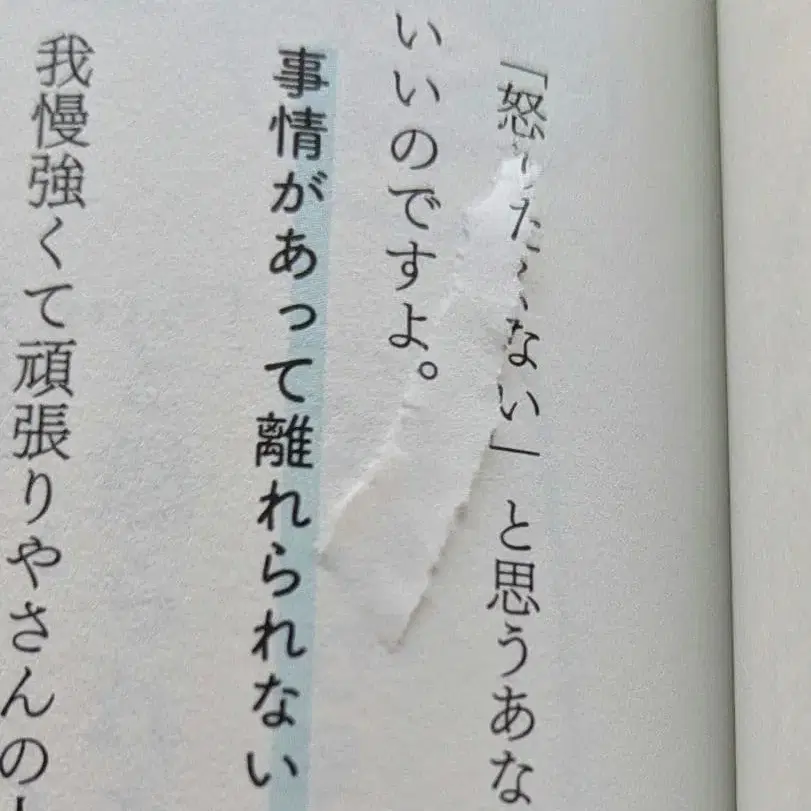 「怒りたくない」と思うあな
いいのですよ。
事情があって離れられない
我慢強くて頑張りやさんの